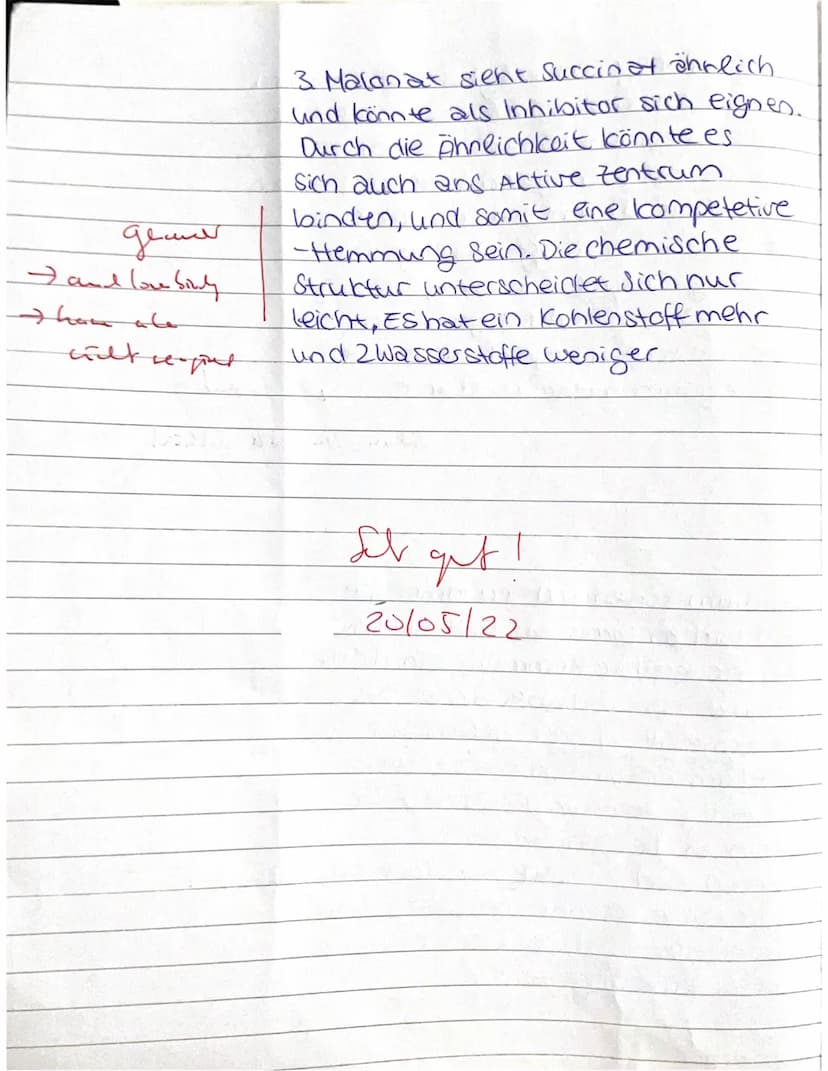 3. Malonat sieht Succinat ähnlich
und könnte als Inhibitor sich eignen.
Durch die Ähnlichkeit könnte es
sich auch ans Aktive Zentrum
binden, und somit eine kompetetive
-Hemmung sein. Die chemische
Struktur unterscheidet sich nur
leicht, Es hat ein Kohlenstoff mehr
und 2 Wasserstoffe weniger
genauer
→
→ kann
nicht
Sehr gut!
20/05/22